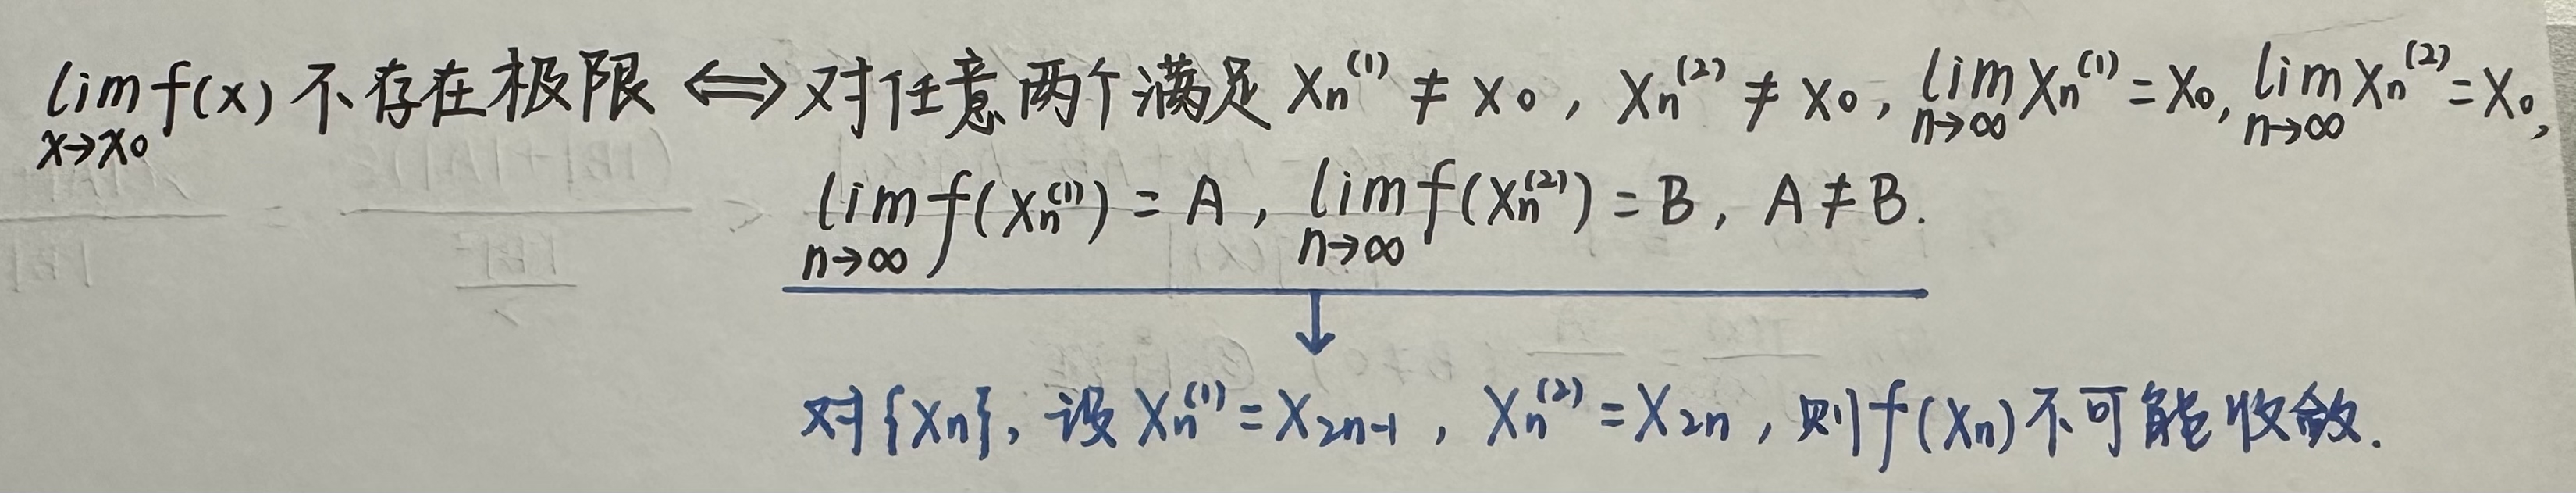 lim f(x) 不存在极限 ⟺ 对任意两个满足 Xn⁽¹⁾ ≠ x₀, Xn⁽²⁾ ≠ x₀, lim Xn⁽¹⁾ = X₀, lim Xn⁽²⁾ = X₀,
x→x₀ n→∞ n→∞
lim f(Xn⁽¹⁾) = A, lim f(Xn⁽²⁾) = B, A ≠ B.
n→∞ n→∞
↓
对{Xn}, 设 Xn⁽¹⁾ = X₂ₙ₋₁, Xn⁽²⁾ = X₂ₙ, 则f(Xn)不可能收敛.